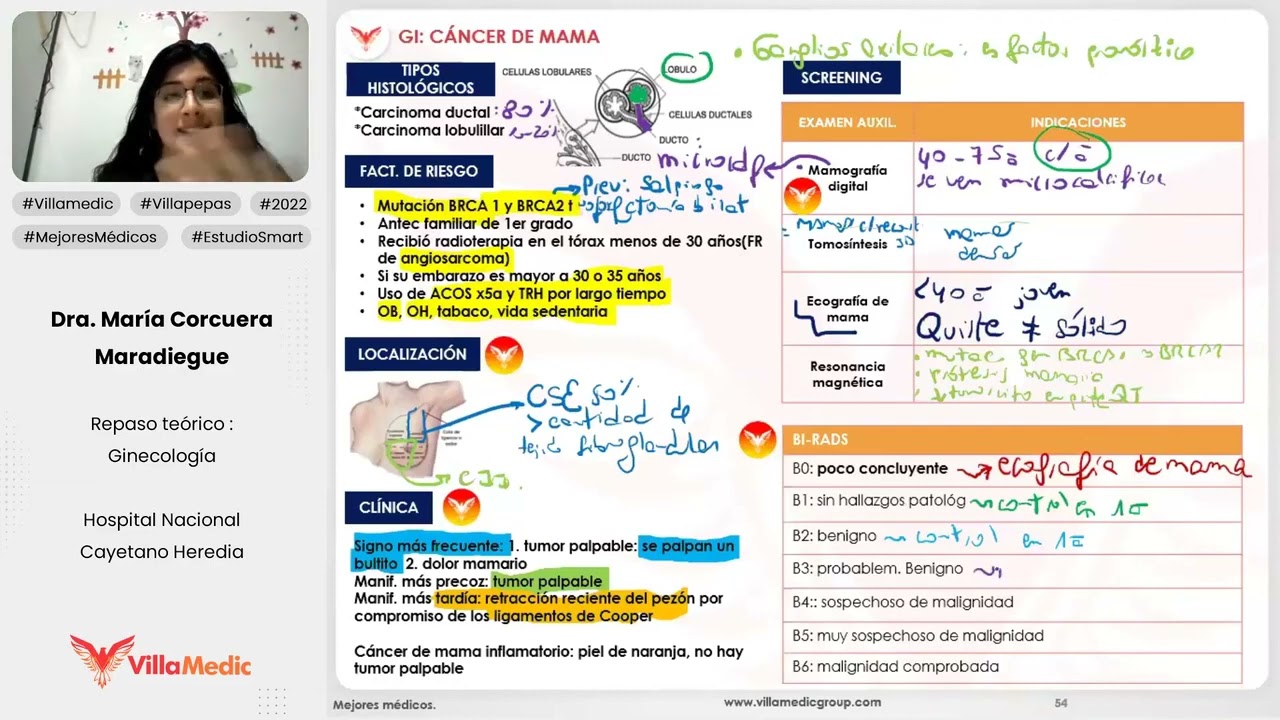 #Villamedic
#Villapepas
#2022
#MejoresMédicos
#EstudioSmart
Dra. María Corcuera
Maradiegue
Repaso teórico :
Ginecología
Hospital Nacional
Cayetano Heredia
VillaMedic
GI: CÁNCER DE MAMA
TIPOS
HISTOLÓGICOS
*Carcinoma ductal : 80%
*Carcinoma lobulillar
CELULAS LOBULARES
LOBULO
CELULAS DUCTALES
DUCTO
DUCTO
FACT. DE RIESGO
• Mutación BRCA 1 y BRCA2 t
• Antec familiar de 1er grado
• Recibió radioterapia en el tórax menos de 30 años(FR
de angiosarcoma)
• Si su embarazo es mayor a 30 o 35 años
• Uso de ACOS x5a y TRH por largo tiempo
• OB, OH, tabaco, vida sedentaria
LOCALIZACIÓN
CSE 50%
> cantidad de
CLÍNICA
Signo más frecuente: 1. tumor palpable: se palpan un
bultito 2. dolor mamario
Manif. más precoz: tumor palpable
Manif. más tardía: retracción reciente del pezón por
compromiso de los ligamentos de Cooper
Cáncer de mama inflamatorio: piel de naranja, no hay
tumor palpable
• Ganglios axilares: es factor pronóstico
SCREENING
EXAMEN AUXIL.
INDICACIONES
Mamografía
digital
40 - 75a
se ven
Tomosíntesis
mamas
densas
Ecografía de
mama
<40a joven
Quiste ≠ sólido
Resonancia
magnética
BI-RADS
B0: poco concluyente ecografía de mama
B1: sin hallazgos patológ control en 1a
B2: benigno control en 1a
B3: problem. Benigno
B4:: sospechoso de malignidad
B5: muy sospechoso de malignidad
B6: malignidad comprobada
Mejores médicos.
www.villamedicgroup.com
54